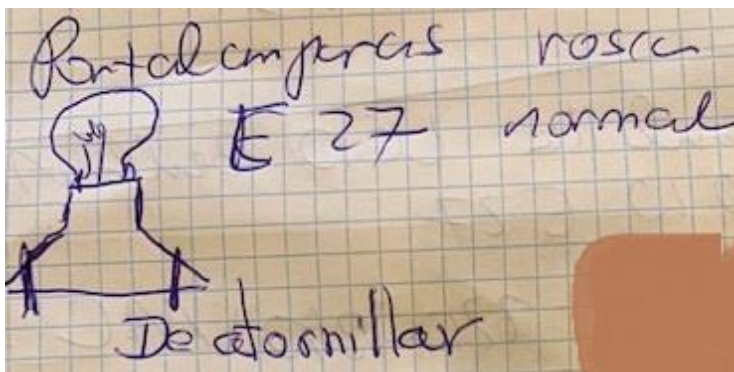 Portalamparas rosca
E 27 normal
De atornillar